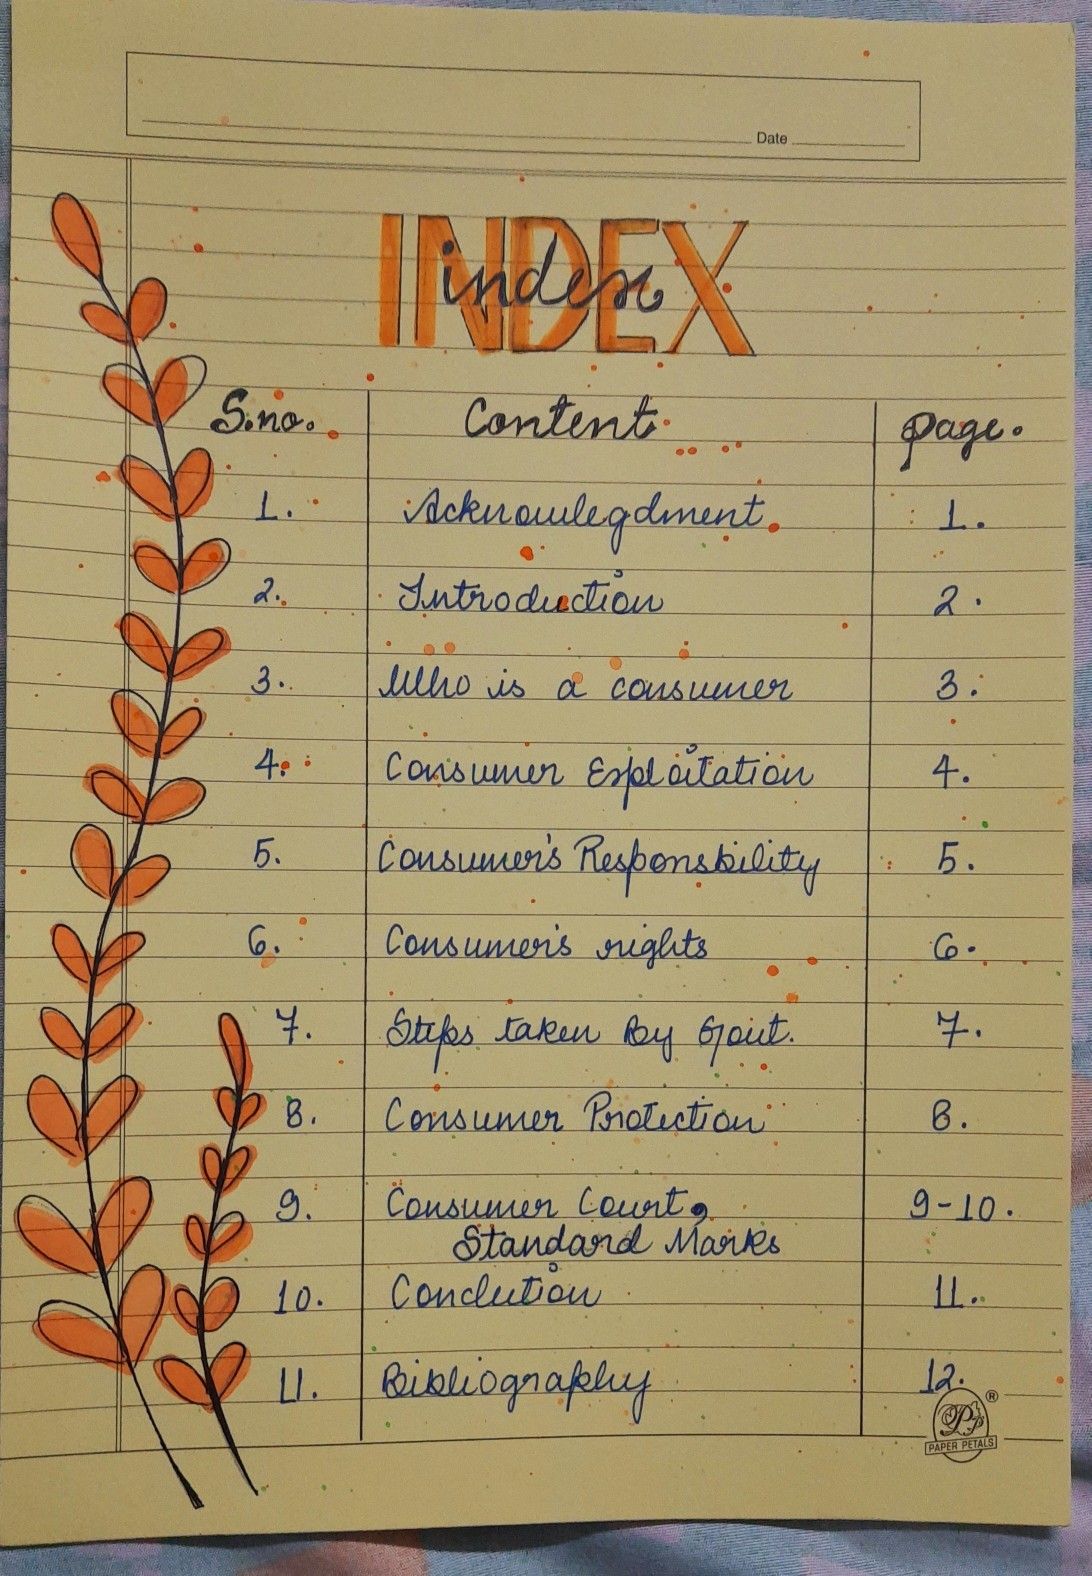 Date
INDEX
index
S.no. Content page.
1. Acknowlegdment. 1.
2. Introduction 2.
3. Who is a consumer 3.
4. Consumer Exploitation 4.
5. Consumer's Responsbility 5.
6. Consumer's rights 6.
7. Steps taken By Govt. 7.
8. Consumer Protection 8.
9. Consumer Court, 9-10.
Standard Marks
10. Conclution 11.
11. Bibliography 12.
PP ®
PAPER PETALS